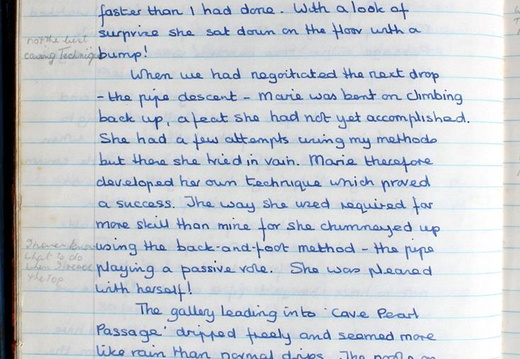 faster than I had done. With a look of
surprize she sat down on the floor with a
not the best
caving Technique
bump!
When we had negotiated the next drop
- the pipe descent - Marie was bent on climbing
back up, a feat she had not yet accomplished.
She had a few attempts using my methods
but there she tried in vain. Marie therefore
developed her own technique which proved
a success. The way she used required far
more skill than mine for she chimneyed up
using the back-and-foot method - the pipe
what to do
the top
playing a passive role. She was pleased
with herself!
The gallery leading into 'Cave Pearl
Passage' dripped freely and seemed more
like rain than normal drips. The